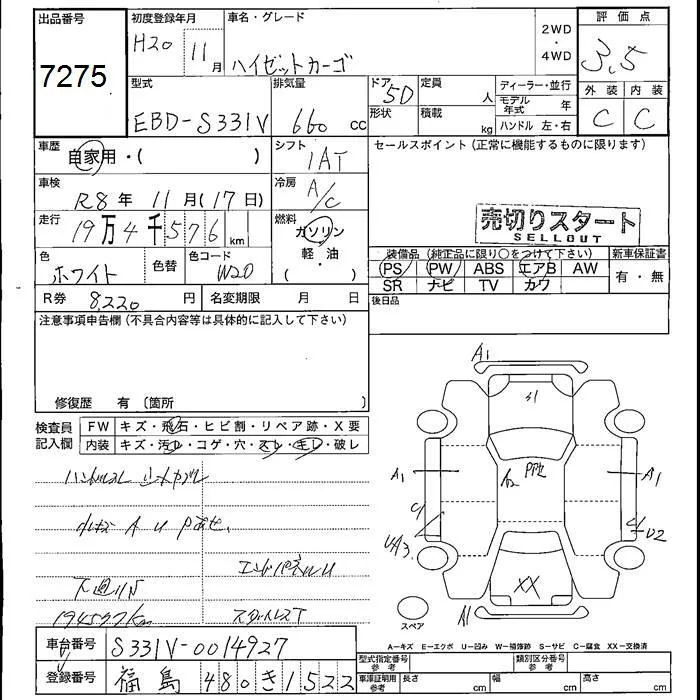 出品番号
7275
初度登録年月
H20 11月
車名・グレード
ハイゼットカーゴ
2WD
・
4WD
評価点
3.5
外装 内装
C C
型式
EBD-S331V
排気量
660 cc
ドア 5D
形状
定員 人
積載 kg
ディーラー・並行
モデル年式 年
ハンドル 左・右
車歴
自家用・( )
シフト
1AT
セールスポイント(正常に機能するものに限ります)
車検
R8年 11月(17日)
冷房
A/C
走行
19万4千576km
燃料
ガソリン
・
軽・油
( )
売切りスタート
SELLOUT
色
ホワイト
色替
色コード
W20
装備品(純正品に限り○をつけて下さい)
PS PW ABS エアB AW
SR ナビ TV カワ
新車保証書
有・無
R券 8,220円
名変期限 月 日
後日品
注意事項申告欄(不具合内容等は具体的に記入して下さい)
修復歴 有〔箇所 〕
検査員
記入欄
FW キズ・飛石・ヒビ割・リペア跡・X要
内装 キズ・汚レ・コゲ・穴・スレ・モレ・破レ
ハンドルスレ シートヤブレ
エンドパネルU
下廻りS
194577km
スタッドレスT
A1
S1
A1
A1
UA3
U2
XX
A1
スペア
A-キズ E-エクボ U-凹み W-補修跡 S-サビ C-腐食 XX-交換済
車台番号
S331V-0014927
登録番号
福島 480き1522
型式指定番号
参考
類別区分番号
参考
車庫証明用
参考
長さ cm
幅 cm
高さ cm